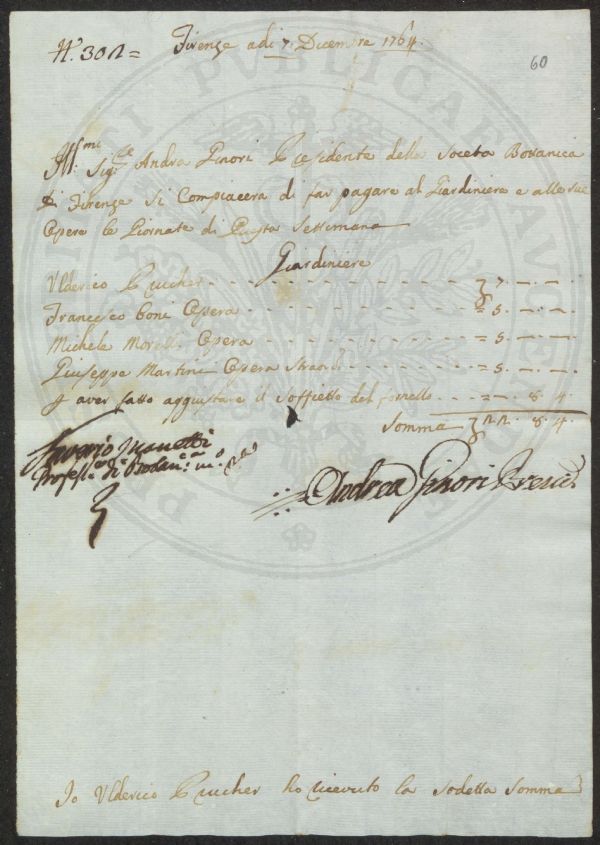 N.° 302 =
Firenze adi 7: Dicembre 1764.
60
Ill:mi Sig:re Andra Ginori Presidente della Soceta Bottanica
di Firenze si Compiacera di far pagare al Giardiniere e alle sue
Opere le Giornate di Questa Settimana
Giardiniere
Ulderico Prucher - - - 7 . — . —
Francesco Boni Opera - - - = 5 . — . —
Michele Morelli Opera - - - = 5 . — . —
Giuseppe Martini Opera Straord: - - - = 5 . — . —
p aver fatto aggiustare il Soffietto del fornello - - - = — . 8 . 4
Somma 22 . 8 . 4
Saverio Manetti
Profess:re di Botan:ca
Andrea Ginori Presid:
Io Ulderico Prucher ho ricevuto la sodetta Somma